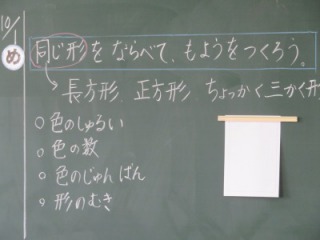 10/1
め 同じ形をならべて、もようをつくろう。
長方形、正方形、ちょっかく三かく形
○色のしゅるい
○色の数
○色のじゅんばん
○形のむき